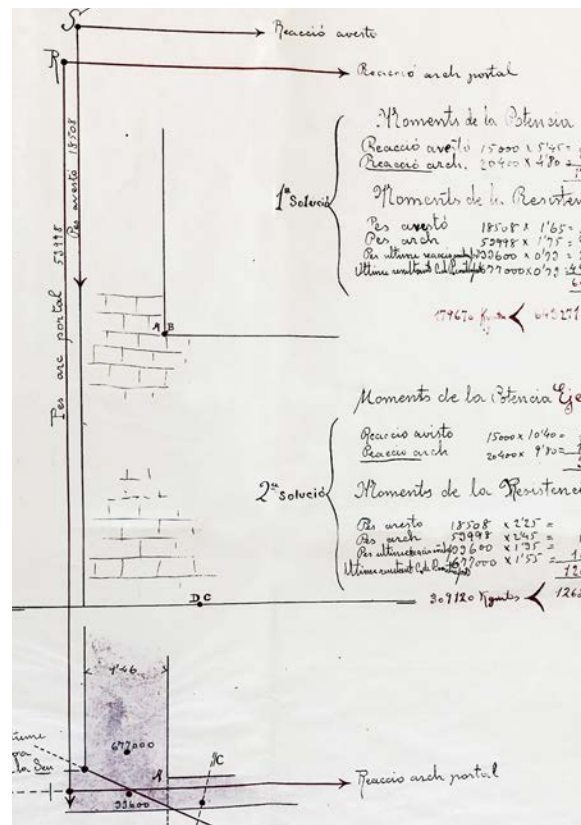 S
Reacció avestó
R
Reacció arch portal
Pes avestó 18508
Pes arc portal 53998
Moments de la Potencia
Reacció avestó 15000 x 5'45 =
Reacció arch. 20400 x 4'80 =
1ª Solució
Moments de la Resisten
Pes avestó 18508 x 1'65 =
Pes arch 53998 x 1'75 =
Pes ultime 33600 x 0'73 =
Ultime resultant 677000 x 0'73
A B
179670 Kgmts < 643271
Moments de la Potencia Eje
Reacció avistó 15000 x 10'40 =
Reacció arch 20400 x 9'80 =
2ª Solució
Moments de la Resistenci
Pes avestó 18508 x 2'25 =
Pes arch 53998 x 2'45 =
Pes ultime 33600 x 1'35 =
Ultime resultant 677000 x 1'55 =
D C
309120 Kgmts < 1262
1'46
677000
la Seu
A
C
Reacció arch portal
33600